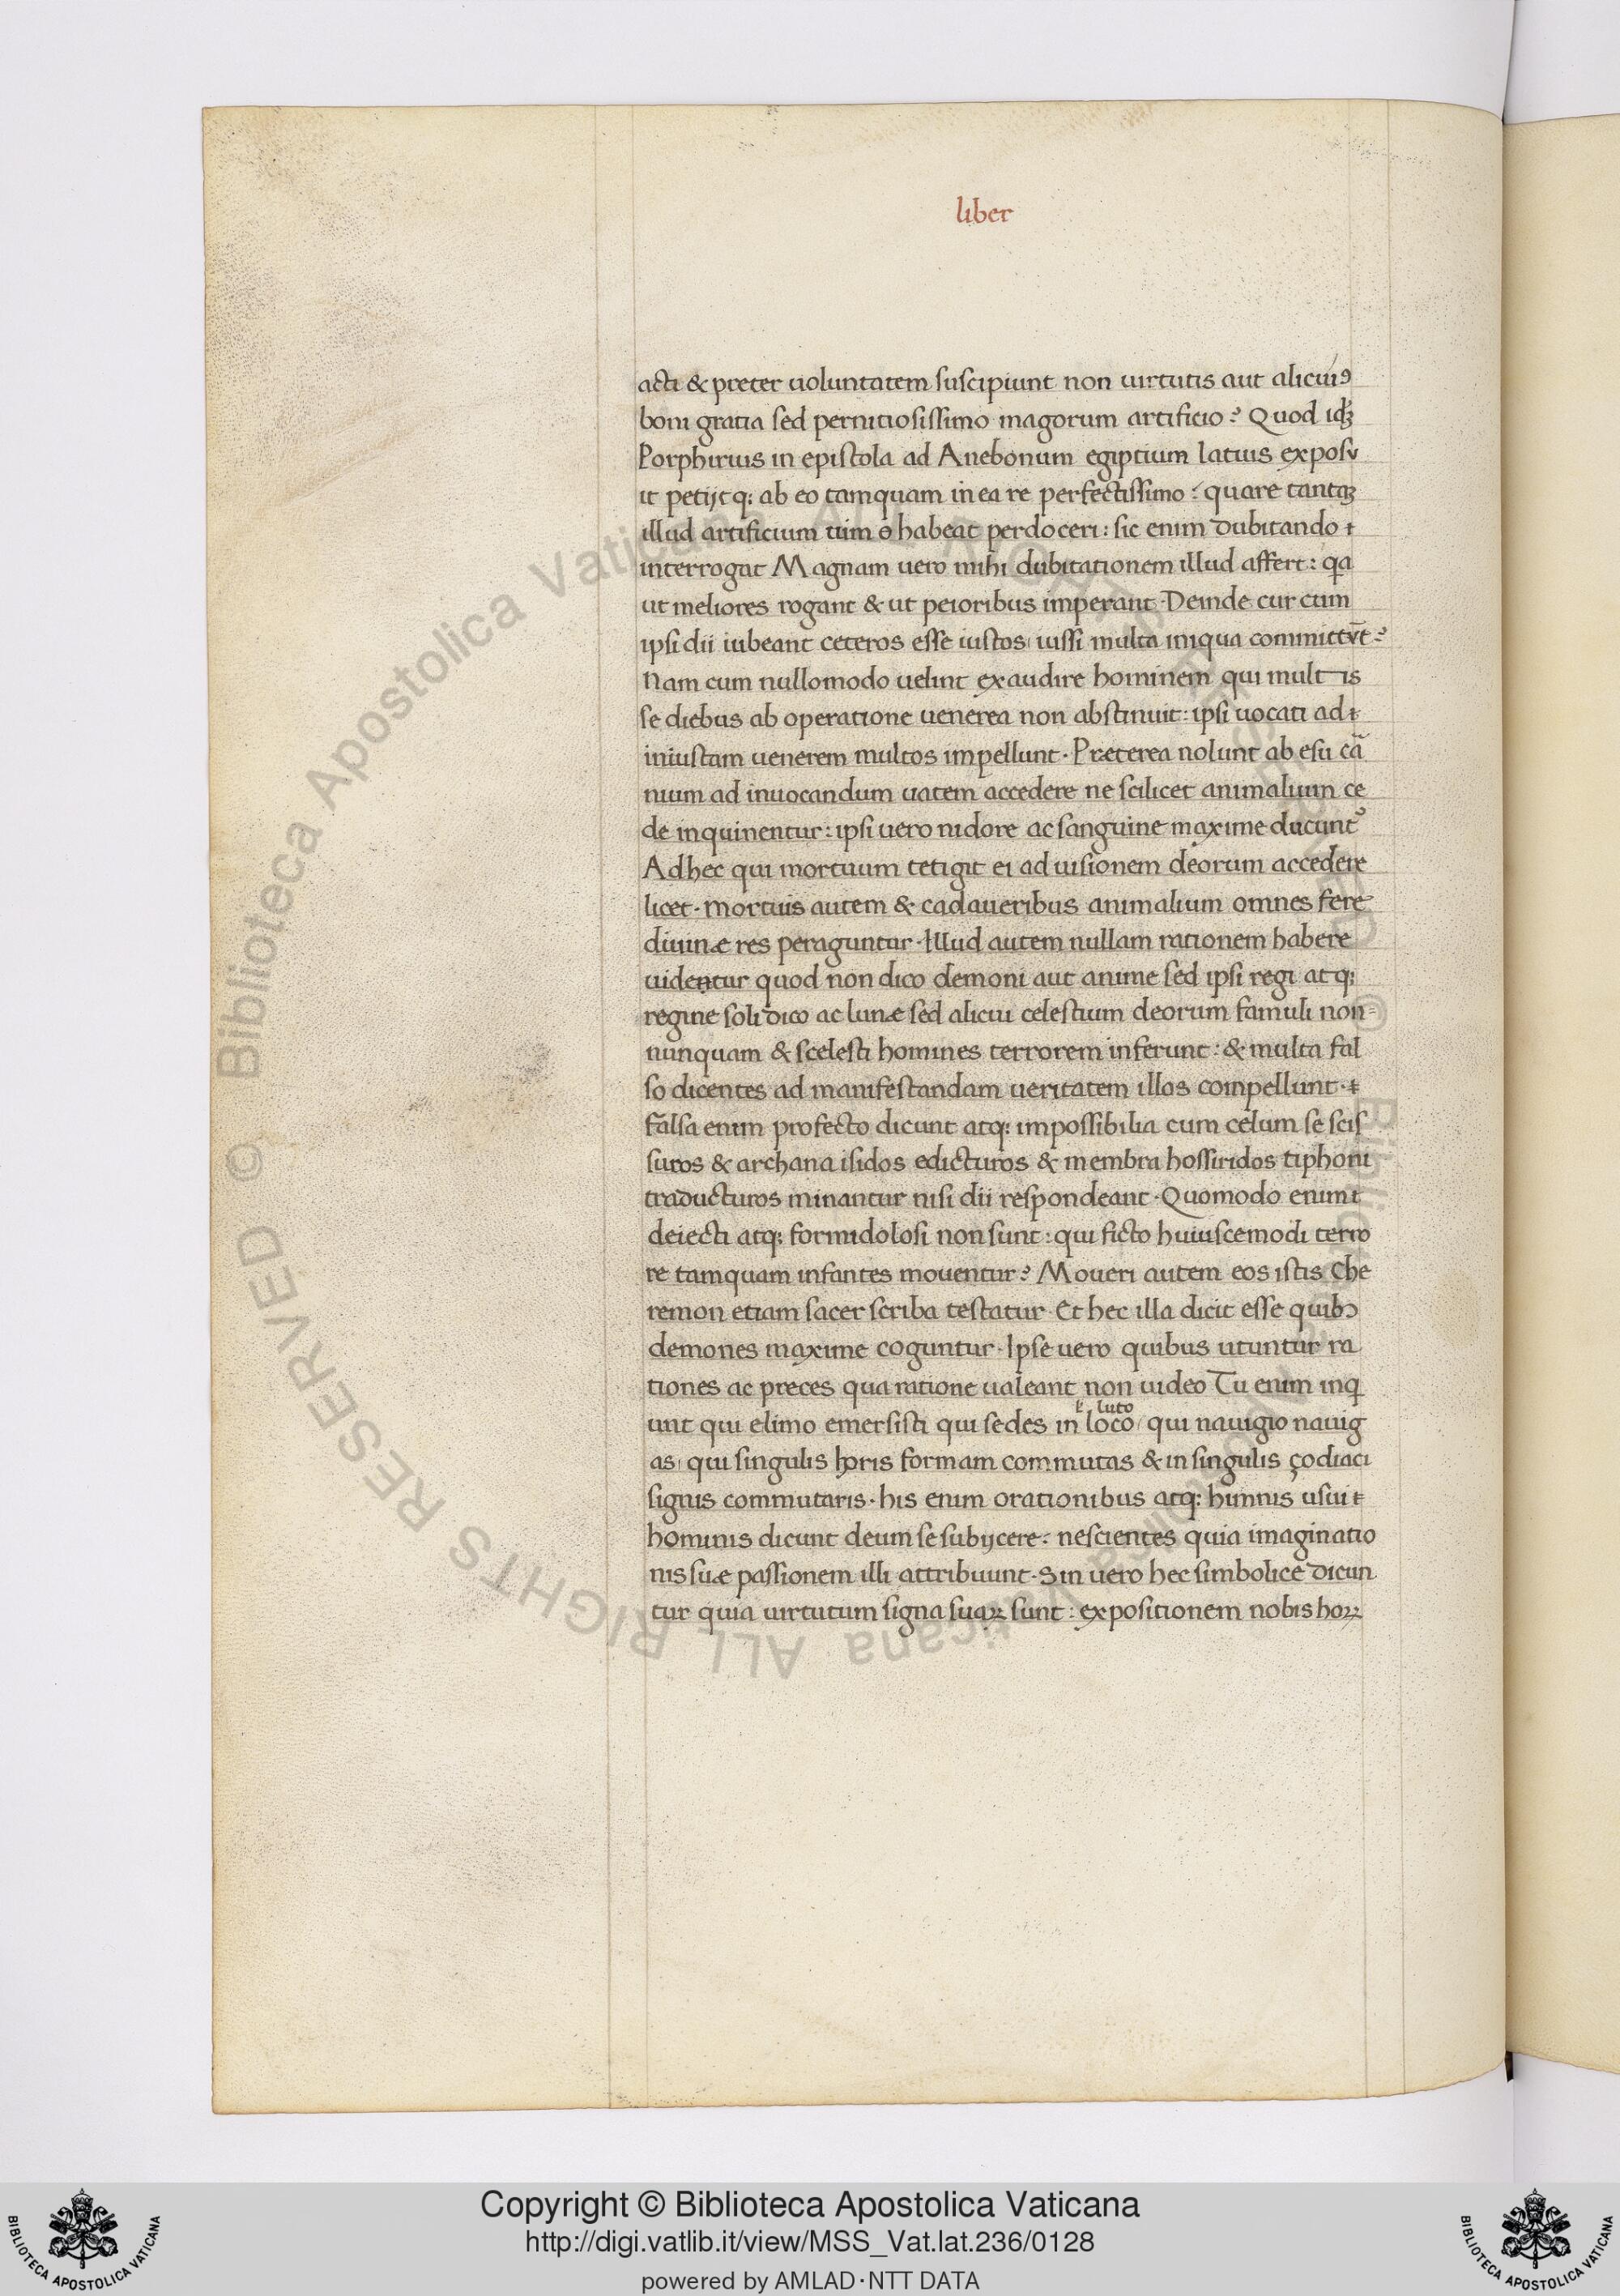 liber
acti & preter uoluntatem suscipiunt non uirtutis aut alicuiꝰ
boni gratia sed pernitiosissimo magorum artificio? Quod idꝫ
Porphirius in epistola ad Anebonum egiptium latius exposu
it petijt q: ab eo tamquam in ea re perfectissimo: quare tantaꝫ
illud artificium uim habeat perdoceri: sic enim dubitando
interrogat Magnam uero mihi dubitationem illud affert: qa
ut meliores rogant & ut peioribus imperant. Deinde cur cum
ipsi dii iubeant ceteros esse iustos iussi multa iniqua committūt?
Nam cum nullomodo uelint exaudire hominem qui multis
se diebus ab operatione uenerea non abstinuit: ipsi uocati ad
iniustam uenerem multos impellunt. Præterea nolunt ab esu cā
nium ad inuocandum uatem accedere ne scilicet animalium ce
de inquinentur: ipsi uero nidore ac sanguine maxime ducunt᷒
Adhec qui mortuum tetigit ei ad uisionem deorum accedere
licet. mortuis autem & cadaueribus animalium omnes fere
diuinæ res peraguntur. Illud autem nullam rationem habere
uidentur quod non dico demoni aut anime sed ipsi regi atq:
regine soli dico ac lunæ sed alicui celestium deorum famuli non
nunquam & scelesti homines terrorem inferunt: & multa fal
so dicentes ad manifestandam ueritatem illos compellunt.
falsa enim profecto dicunt atq: impossibilia cum celum se scis
suros & archana isidos edicturos & membra hossiridos tiphoni
traducturos minantur nisi dii respondeant. Quomodo enim
deiecti atq: formidolosi non sunt: qui ficto huiuscemodi terro
re tamquam infantes mouentur? Moueri autem eos istis Che
remon etiam sacer scriba testatur. Et hec illa dicit esse quibꝰ
demones maxime coguntur. Ipse uero quibus utuntur ra
tiones ac preces qua ratione ualeant non uideo Tu enim inq
ł luto
unt qui elimo emersisti qui sedes in loco qui nauigio nauig
as qui singulis horis formam commutas & in singulis çodiaci
signis commutaris. his enim orationibus atq: himnis usui
hominis dicunt deum se subijcere: nescientes quia imaginatio
nis suæ passionem illi attribuunt. Sin uero hec simbolice dicun
tur quia uirtutum signa suaꝝ sunt: expositionem nobis hoꝝ
Copyright © Biblioteca Apostolica Vaticana
http://digi.vatlib.it/view/MSS_Vat.lat.236/0128
powered by AMLAD·NTT DATA
BIBLIOTECA APOSTOLICA VATICANA
BIBLIOTECA APOSTOLICA VATICANA
© Biblioteca Apostolica Vaticana ALL RIGHTS RESERVED